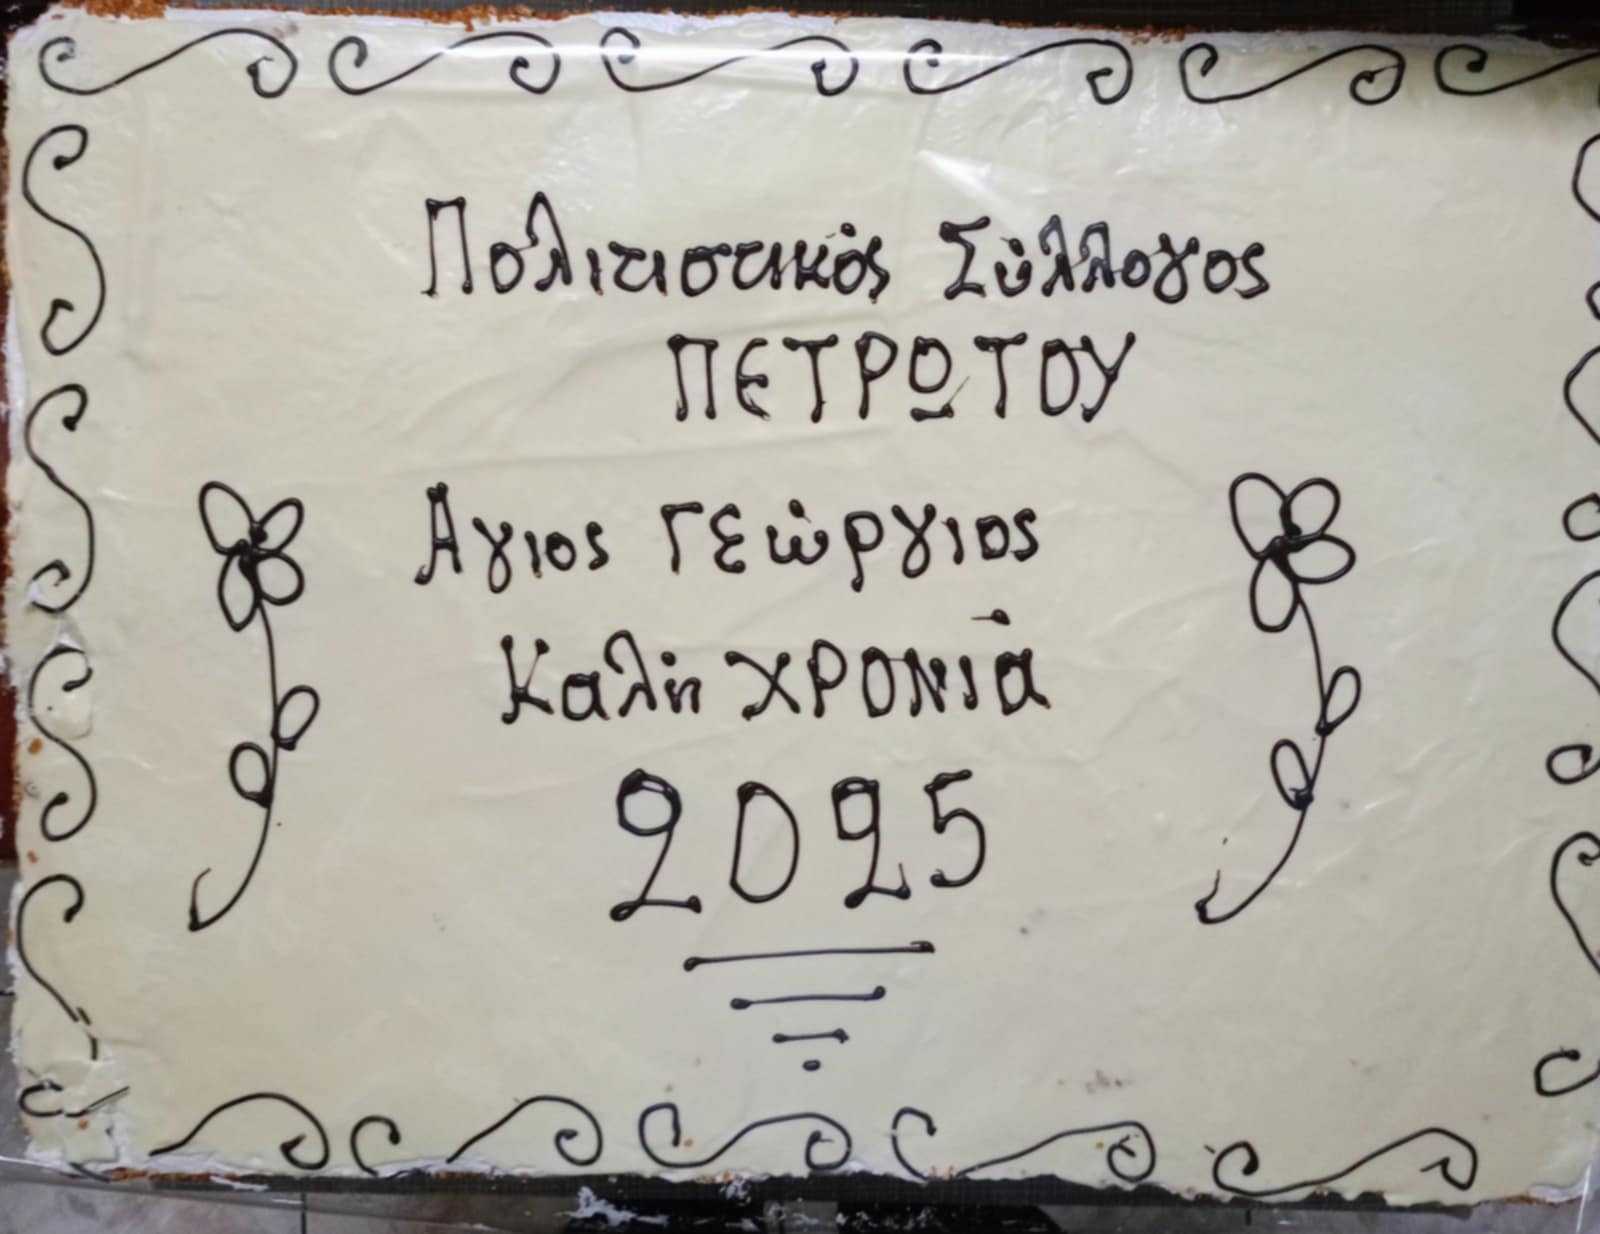 Πολιτιστικός Σύλλογος
ΠΕΤΡΩΤΟΥ
Αγιος Γεώργιος
Καλή ΧΡΟΝΙά
2025